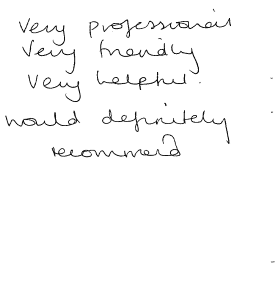 Very professional
Very friendly
Very helpful.
would definitely
recommend